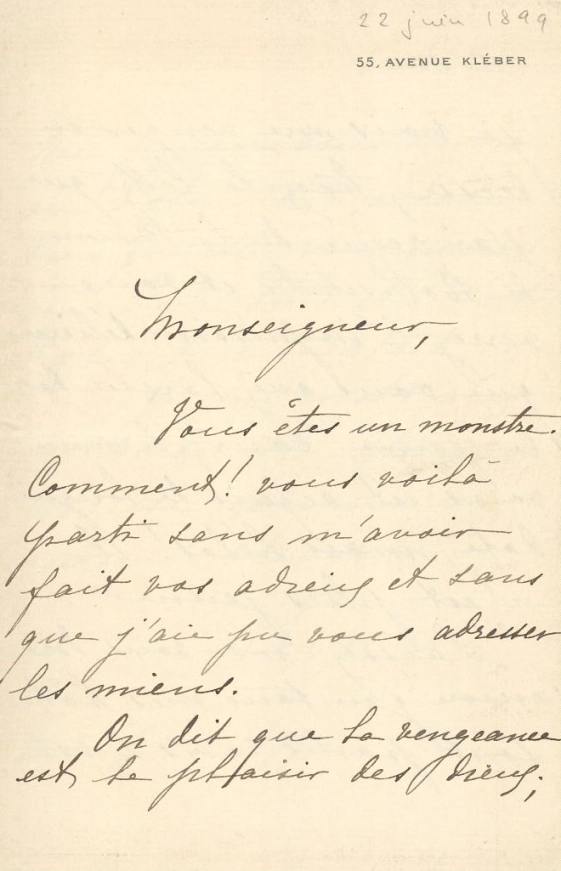 22 juin 1899
55, AVENUE KLÉBER
Monseigneur,
Vous êtes un monstre.
Comment! vous voilà
parti sans m'avoir
fait vos adieux et sans
que j'aie pu vous adresser
les miens.
On dit que la vengeance
est le plaisir des dieux;